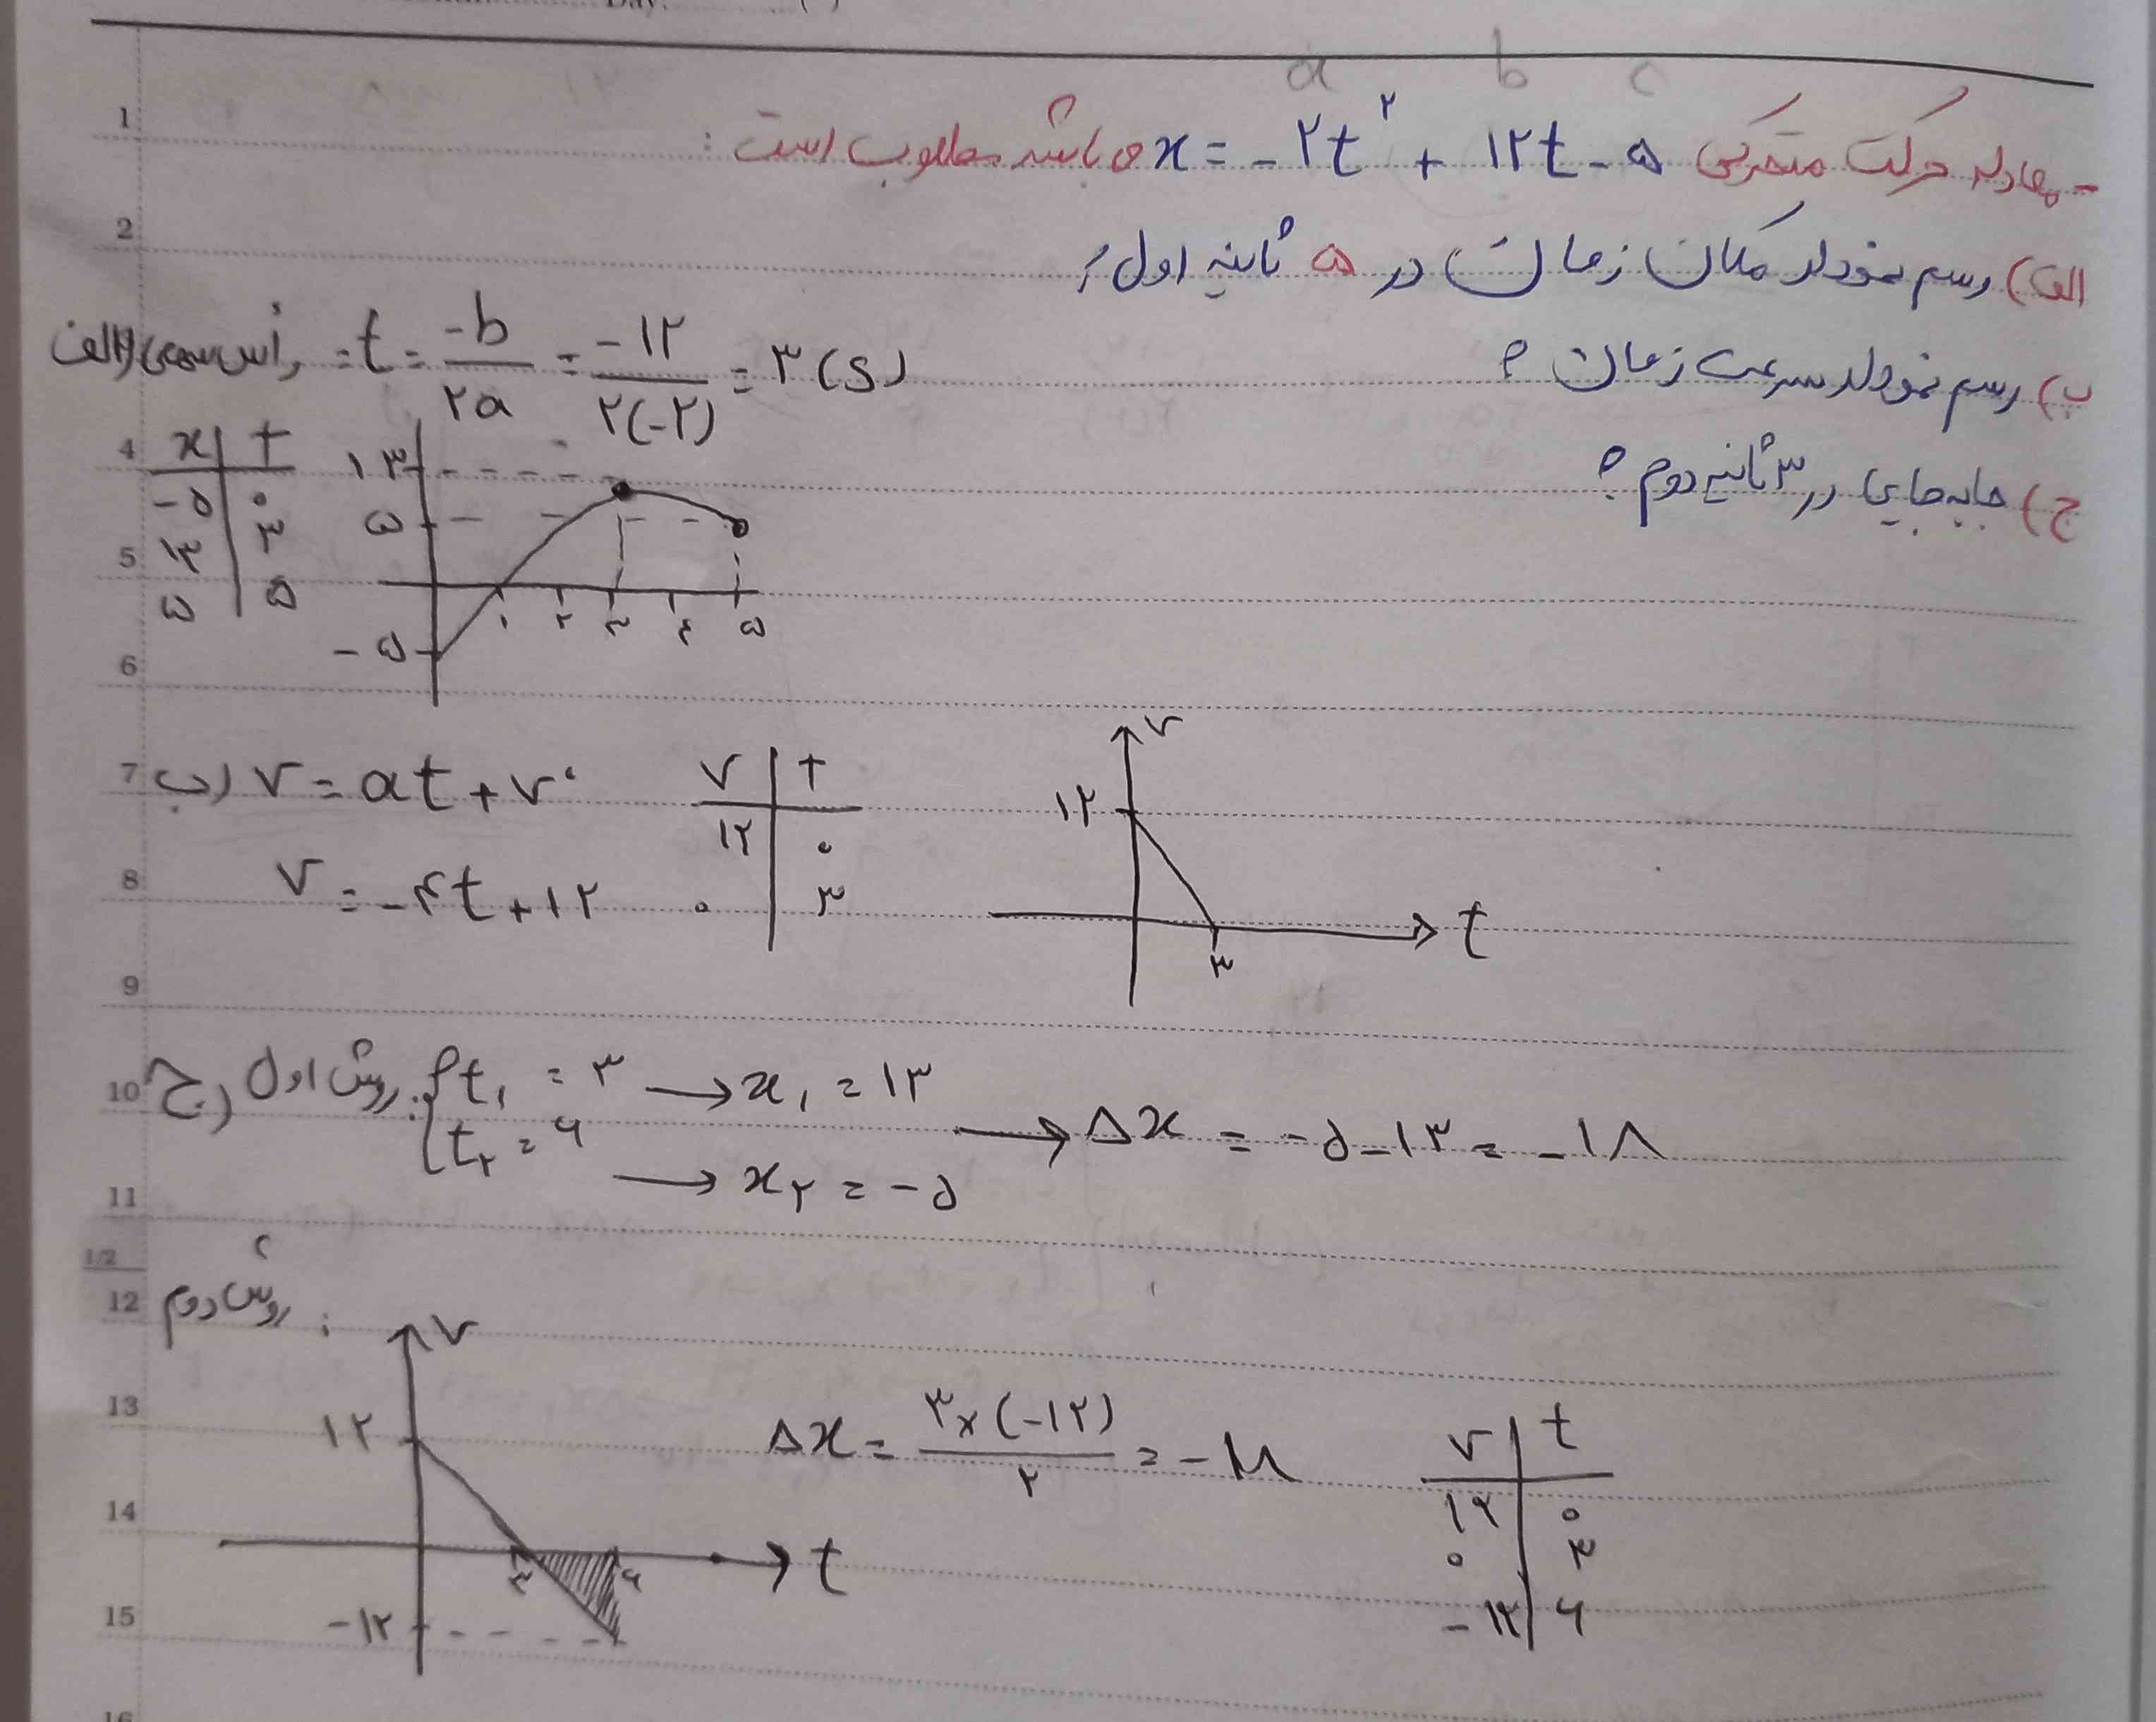 Day: ( )
a b c
- معادله حرکت متحرکی x = -۲t^۲ + ۱۲t - ۵ می باشد مطلوب است :
الف) رسم نمودار مکان زمان در ۵ ثانیه اول؟
ب) رسم نمودار سرعت زمان ؟
ج) جابه جایی در ۳ ثانیه دوم ؟
الف) رأس سهمی = t = -b/۲a = -۱۲/۲(-۲) = ۳ (s)
x | t
-۵ | ۰
۱۳ | ۳
۵ | ۵
۱۳
۵
-۵
۱ ۲ ۳ ۴ ۵
ب) v = at + v۰
v = -۴t + ۱۲
v | t
۱۲ | ۰
۰ | ۳
v
۱۲
۳
t
ج) روش اول: { t۱ = ۳ → x۱ = ۱۳
t۲ = ۶ → x۲ = -۵
→ Δx = -۵ - ۱۳ = -۱۸
روش دوم :
v
۱۲
-۱۲
۳ ۶
t
Δx = ۳×(-۱۲)/۲ = -۱۸
v | t
۱۲ | ۰
۰ | ۳
-۱۲ | ۶
1
2
4
5
6
7
8
9
10
11
1/2
12
13
14
15
16